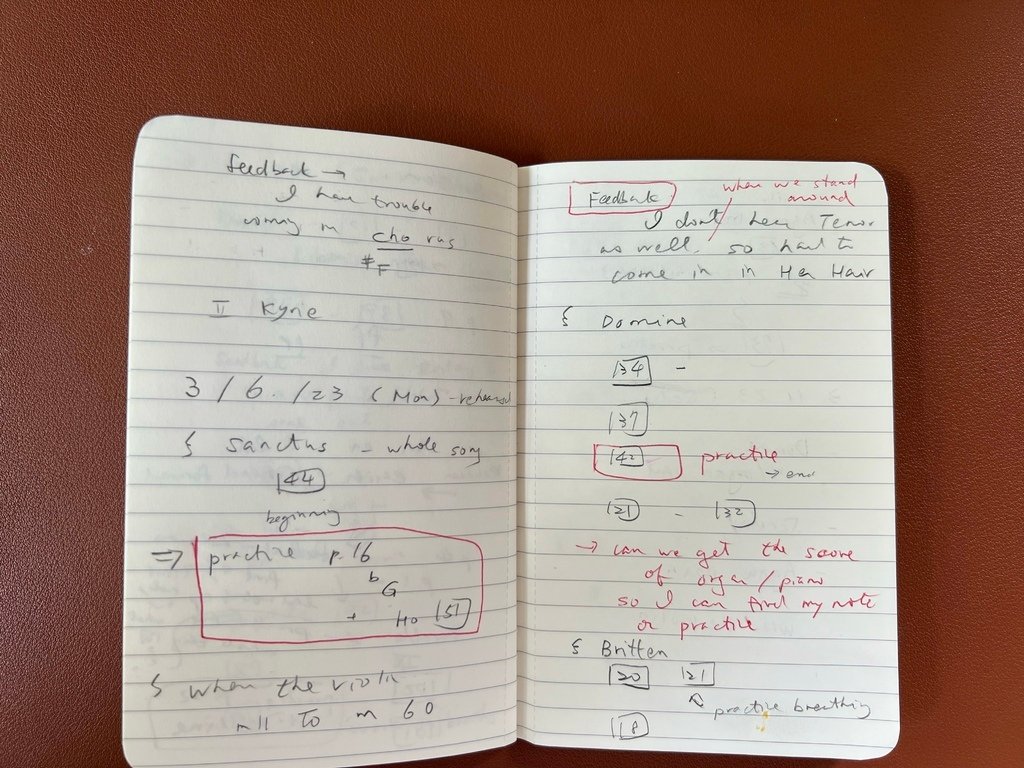 Feedback →
I have trouble
coming in chorus
#F
II Kyrie
3/6./23 (Mon) - rehearsal
{ Sanctus - whole song
144
beginning
⇒ practice p.16
b G
+ Ho 151
{ when the violin
m11 to m 60
Feedback
when we stand
around
I don't hear Tenor
as well. so hard to
come in in Her Hair
{ Domine
134 -
137
142 practice
→ end
121 - 132
→ can we get the score
of organ/piano
so I can find my note
or practice
{ Britten
120 121
practice breathing
118